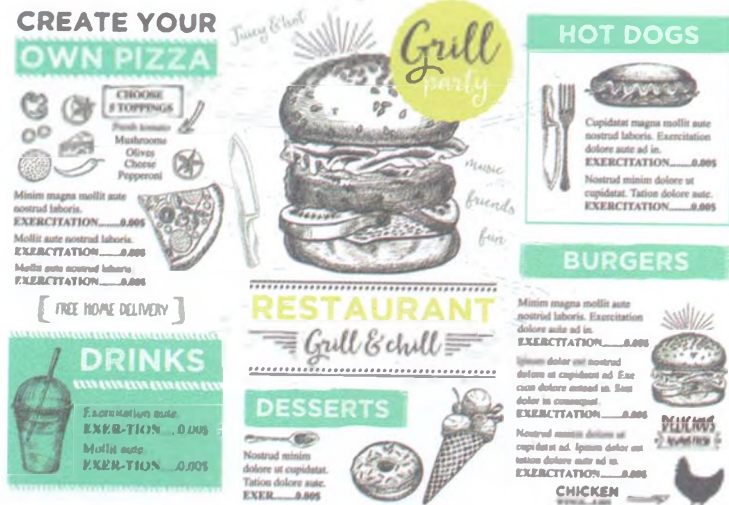 CREATE YOUR
OWN PIZZA
CHOOSE
5 TOPPINGS
Fresh tomato
Mushrooms
Olives
Cheese
Pepperoni
Minim magna mollit aute
nostrud laboris.
EXERCITATION.......0.00$
Mollit aute nostrud laboris.
EXERCITATION.......0.00$
Mollit aute nostrud laboris
EXERCITATION.......0.00$
[ FREE HOME DELIVERY ]
DRINKS
Exercitation aute.
EXER-TION....0.00$
Mollit aute.
EXER-TION....0.00$
Juicy & hot
Grill
party
music
friends
fun
RESTAURANT
Grill & chill
DESSERTS
Nostrud minim
dolore ut cupidatat.
Tation dolore aute.
EXER.......0.00$
HOT DOGS
Cupidatat magna mollit aute
nostrud laboris. Exercitation
dolore aute ad in.
EXERCITATION.......0.00$
Nostrud minim dolore ut
cupidatat. Tation dolore aute.
EXERCITATION.......0.00$
BURGERS
Minim magna mollit aute
nostrud laboris. Exercitation
dolore aute ad in.
EXERCITATION.......0.00$
Ipsum dolor est nostrud
dolore ut cupidatat ad. Exe
cum dolore ad in. Sunt
dolor in consequat.
EXERCITATION.......0.00$
Nostrud minim dolore ut
cupidatat ad. Ipsum dolor est
tation dolore aute ad in.
EXERCITATION.......0.00$
DELICIOUS
CHICKEN